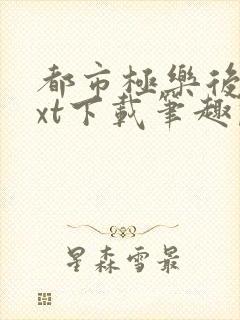 都市極樂後
xt下載筆趣
星森雪最